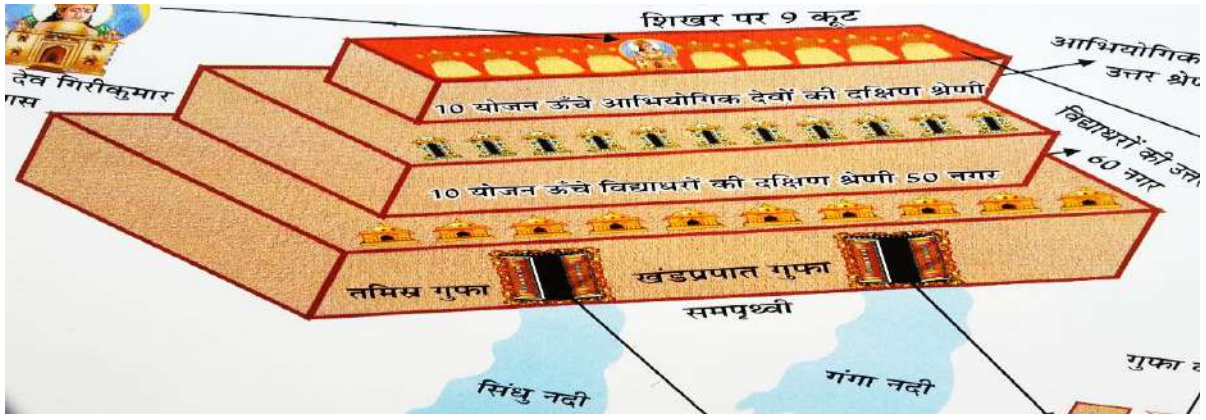 शिखर पर 9 कूट
देव गिरीकुमार
आभियोगिक
उत्तर
10 योजन ऊँचे आभियोगिक देवों की दक्षिण श्रेणी
विद्याधरों की
60 नगर
10 योजन ऊँचे विद्याधरों की दक्षिण श्रेणी 50 नगर
तमिस्र गुफा
खंडप्रपात गुफा
समपृथ्वी
सिंधु नदी
गंगा नदी
गुफा